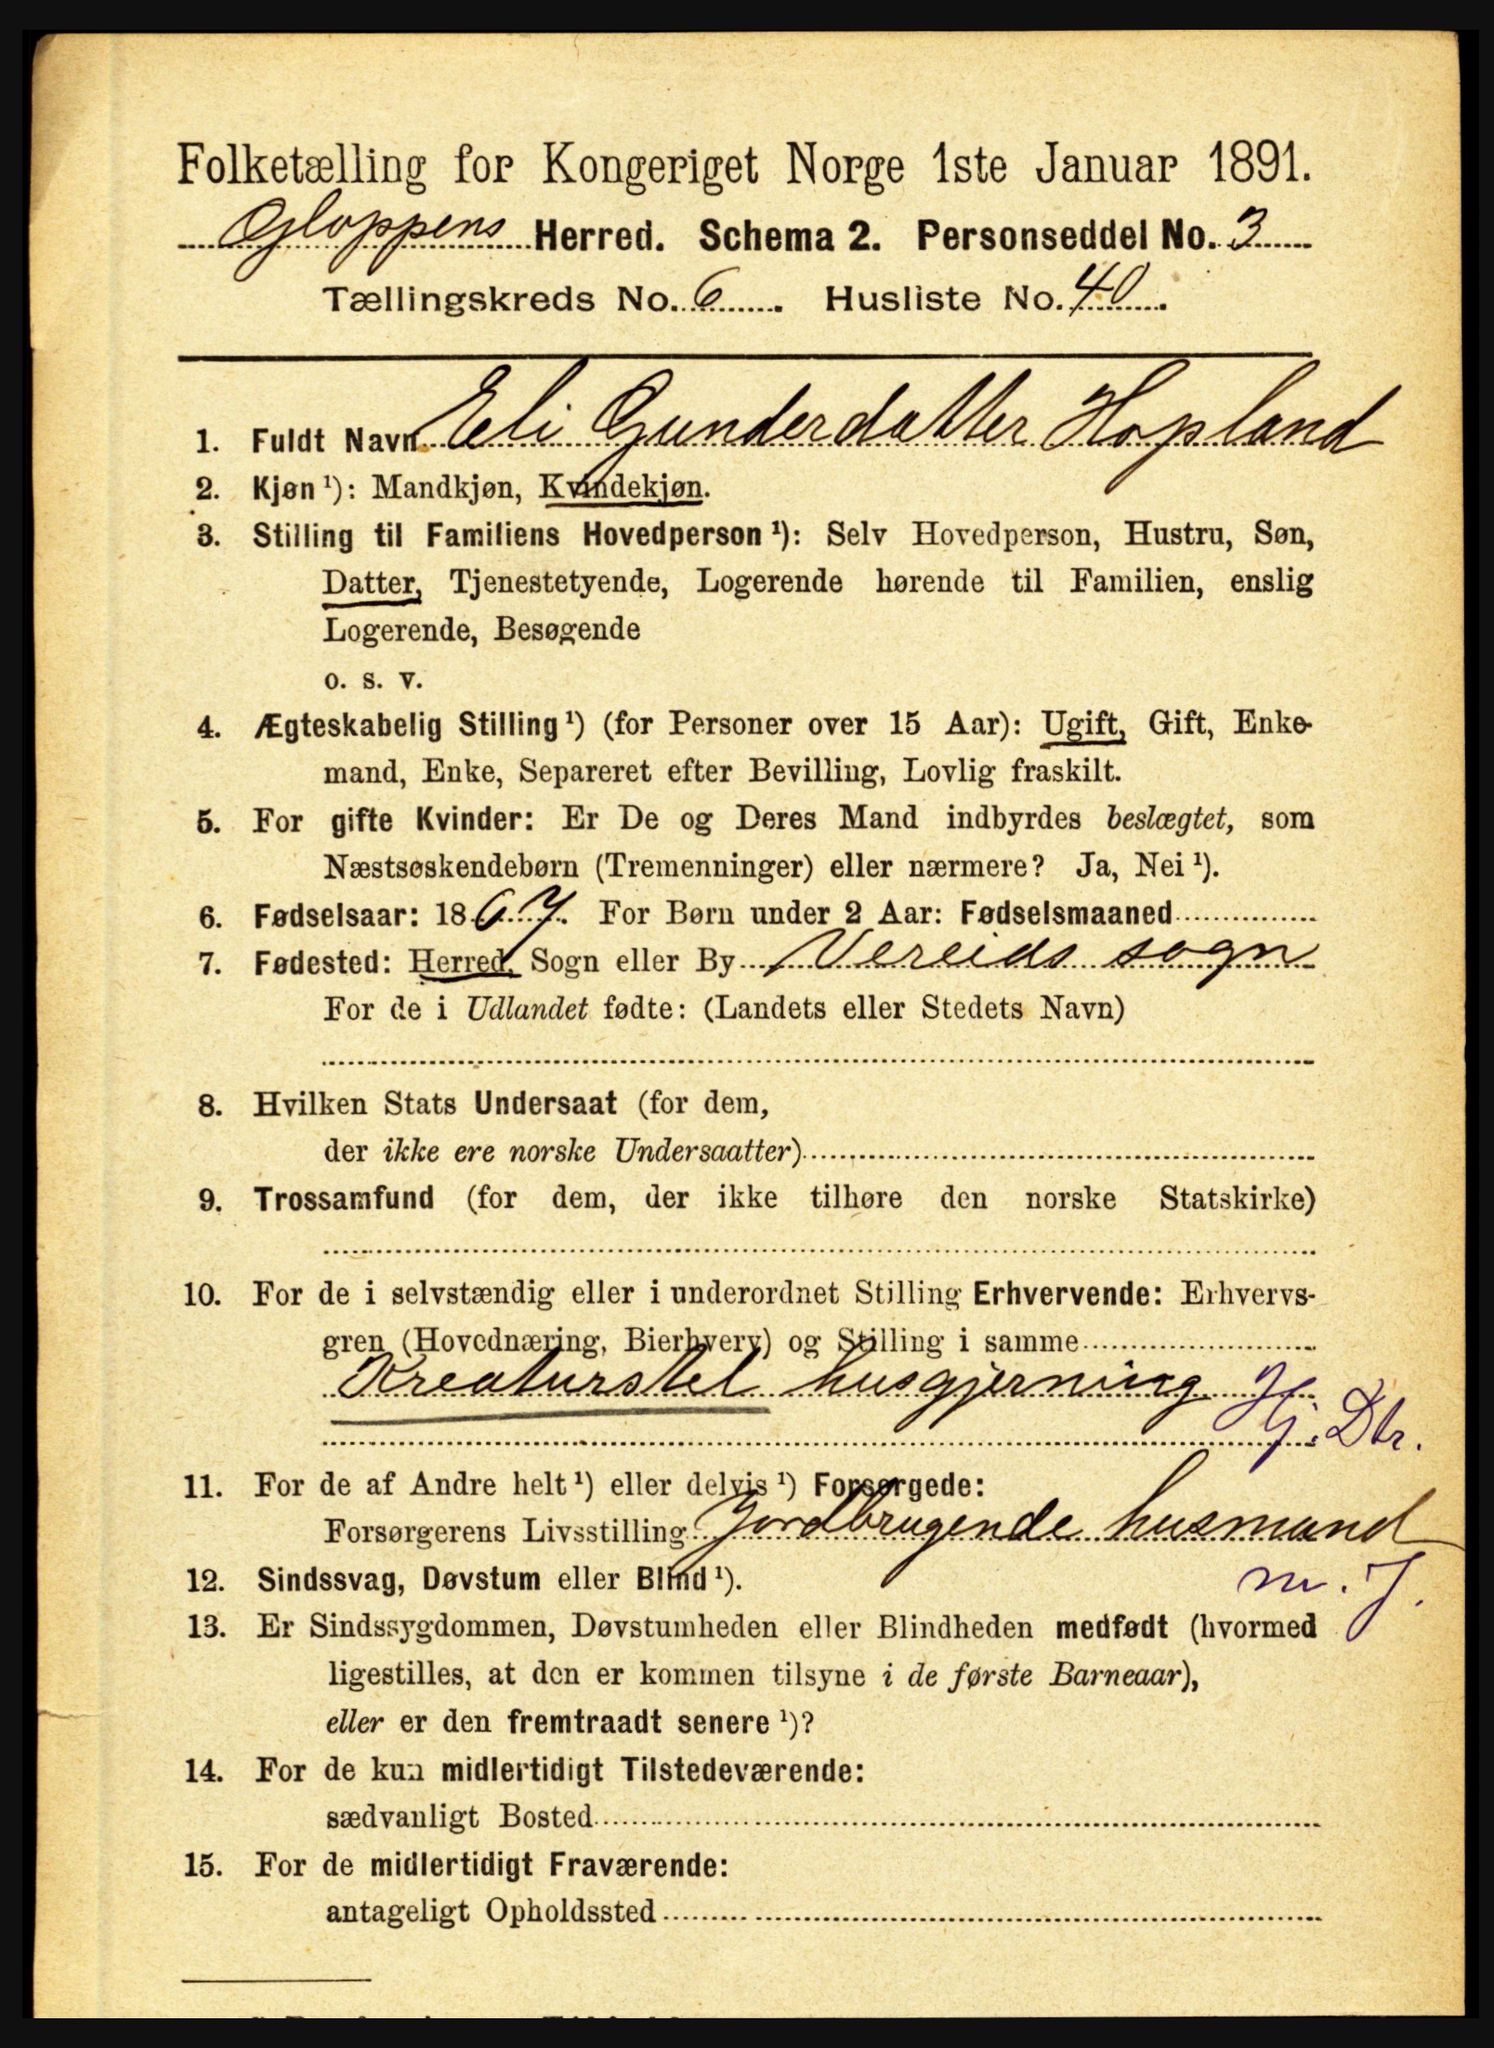 Folketælling for Kongeriget Norge 1ste Januar 1891.
Gloppens Herred. Schema 2. Personseddel No. 3
Tællingskreds No. 6. Husliste No. 40.
1. Fuldt Navn Eli Gunderdatter Hopland
2. Kjøn ¹): Mandkjøn, Kvindekjøn.
3. Stilling til Familiens Hovedperson ¹): Selv Hovedperson, Hustru, Søn,
Datter, Tjenestetyende, Logerende hørende til Familien, enslig
Logerende, Besøgende
o. s. v.
4. Ægteskabelig Stilling ¹) (for Personer over 15 Aar): Ugift, Gift, Enke-
mand, Enke, Separeret efter Bevilling, Lovlig fraskilt.
5. For gifte Kvinder: Er De og Deres Mand indbyrdes beslægtet, som
Næstsøskendebørn (Tremenninger) eller nærmere? Ja, Nei ¹).
6. Fødselsaar: 1867. For Børn under 2 Aar: Fødselsmaaned
7. Fødested: Herred, Sogn eller By Vereids sogn
For de i Udlandet fødte: (Landets eller Stedets Navn)
8. Hvilken Stats Undersaat (for dem,
der ikke ere norske Undersaatter)
9. Trossamfund (for dem, der ikke tilhøre den norske Statskirke)
10. For de i selvstændig eller i underordnet Stilling Erhvervende: Erhvervs-
gren (Hovednæring, Bierhverv) og Stilling i samme
Kreaturstel husgjerning Hj. Dtr.
11. For de af Andre helt ¹) eller delvis ¹) Forsørgede:
Forsørgerens Livsstilling Jordbrugende husmand
m. J.
12. Sindssvag, Døvstum eller Blind ¹).
13. Er Sindssygdommen, Døvstumheden eller Blindheden medfødt (hvormed
ligestilles, at den er kommen tilsyne i de første Barneaar),
eller er den fremtraadt senere ¹)?
14. For de kun midlertidigt Tilstedeværende:
sædvanligt Bosted
15. For de midlertidigt Fraværende:
antageligt Opholdssted